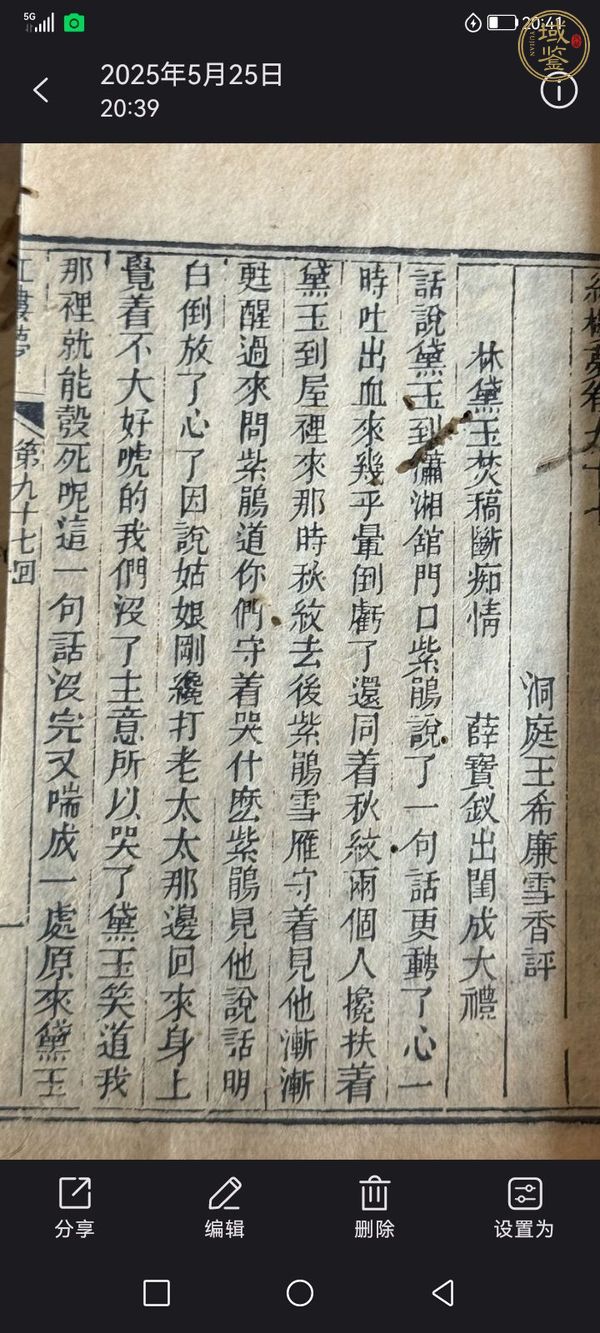 5G
20:41
域鉴
YUJIAN
2025年5月25日
20:39
洞庭王希廉雪香評
林黛玉焚稿斷痴情 薛寶釵出閨成大禮
話說黛玉到瀟湘舘門口紫鵑說了一句話更動了心一
時吐出血來幾乎暈倒虧了還同着秋紋兩個人攙扶着
黛玉到屋裡來那時秋紋去後紫鵑雪雁守着見他漸漸
甦醒過來問紫鵑道你們守着哭什麽紫鵑見他說話明
白倒放了心了因說姑娘剛纔打老太太那邊回來身上
覺着不大好唬的我們沒了主意所以哭了黛玉笑道我
那裡就能彀死呢這一句話沒完又喘成一處原來黛玉
紅樓夢
第九十七回
一
分享
编辑
删除
设置为